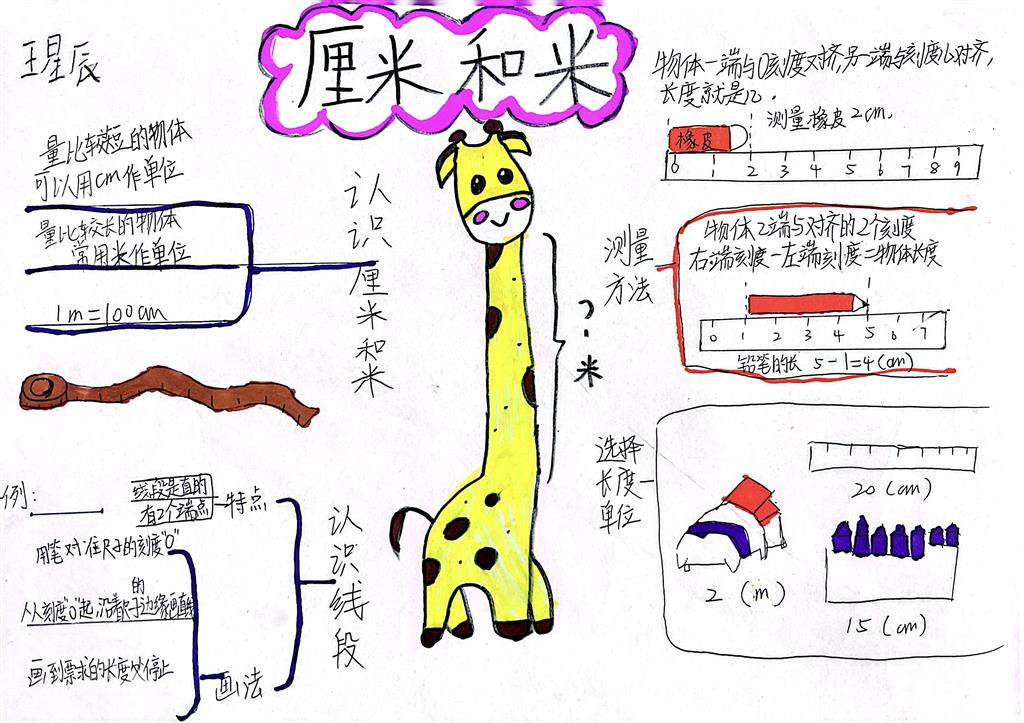 王星辰
厘米和米
量比较短的物体
可以用cm作单位
量比较长的物体
常用米作单位
1m=100cm
认识厘米和米
?米
物体一端与0刻度对齐,另一端与刻度几对齐,
长度就是几.
测量橡皮2cm.
橡皮
0 1 2 3 4 5 6 7 8 9
测量
方法
物体2端与对齐的2个刻度
右端刻度-左端刻度=物体长度
0 1 2 3 4 5 6 7
铅笔的长 5-1=4(cm)
选择
长度
单位
20(cm)
2(m)
15(cm)
认识线段
例:
线段是直的
有2个端点
特点
用笔对准尺子的刻度"0"
从刻度"0"起,沿着尺子的边缘画直线
画到要求的长度处停止
画法